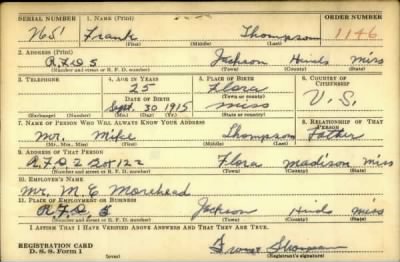 SERIAL NUMBER 1. NAME (Print) ORDER NUMBER
765 Frank Thompson 1146
(First) (Middle) (Last)
2. ADDRESS (Print)
R.F.D 5 Jackson Hinds Miss
(Number and street or R. F. D. number) (Town) (County) (State)
3. TELEPHONE 4. AGE IN YEARS 5. PLACE OF BIRTH 6. COUNTRY OF CITIZENSHIP
25 Flora
DATE OF BIRTH (Town or county) U.S.
Sept. 30 1915 Miss
(Exchange) (Number) (Mo.) (Day) (Yr.) (State or country)
7. NAME OF PERSON WHO WILL ALWAYS KNOW YOUR ADDRESS 8. RELATIONSHIP OF THAT PERSON
Mr. Mike Thompson Father
(Mr., Mrs., Miss) (First) (Middle) (Last)
9. ADDRESS OF THAT PERSON
R.F.D. 2 Flora Madison Miss
(Number and street or R. F. D. number) (Town) (County) (State)
10. EMPLOYER'S NAME
Mr. M. E Morehead
11. PLACE OF EMPLOYMENT OR BUSINESS
R.F.D. 5 Jackson Hinds Miss
(Number and street or R. F. D. number) (Town) (County) (State)
I AFFIRM THAT I HAVE VERIFIED ABOVE ANSWERS AND THAT THEY ARE TRUE.
REGISTRATION CARD
D. S. S. Form 1 (over) (Registrant's signature)